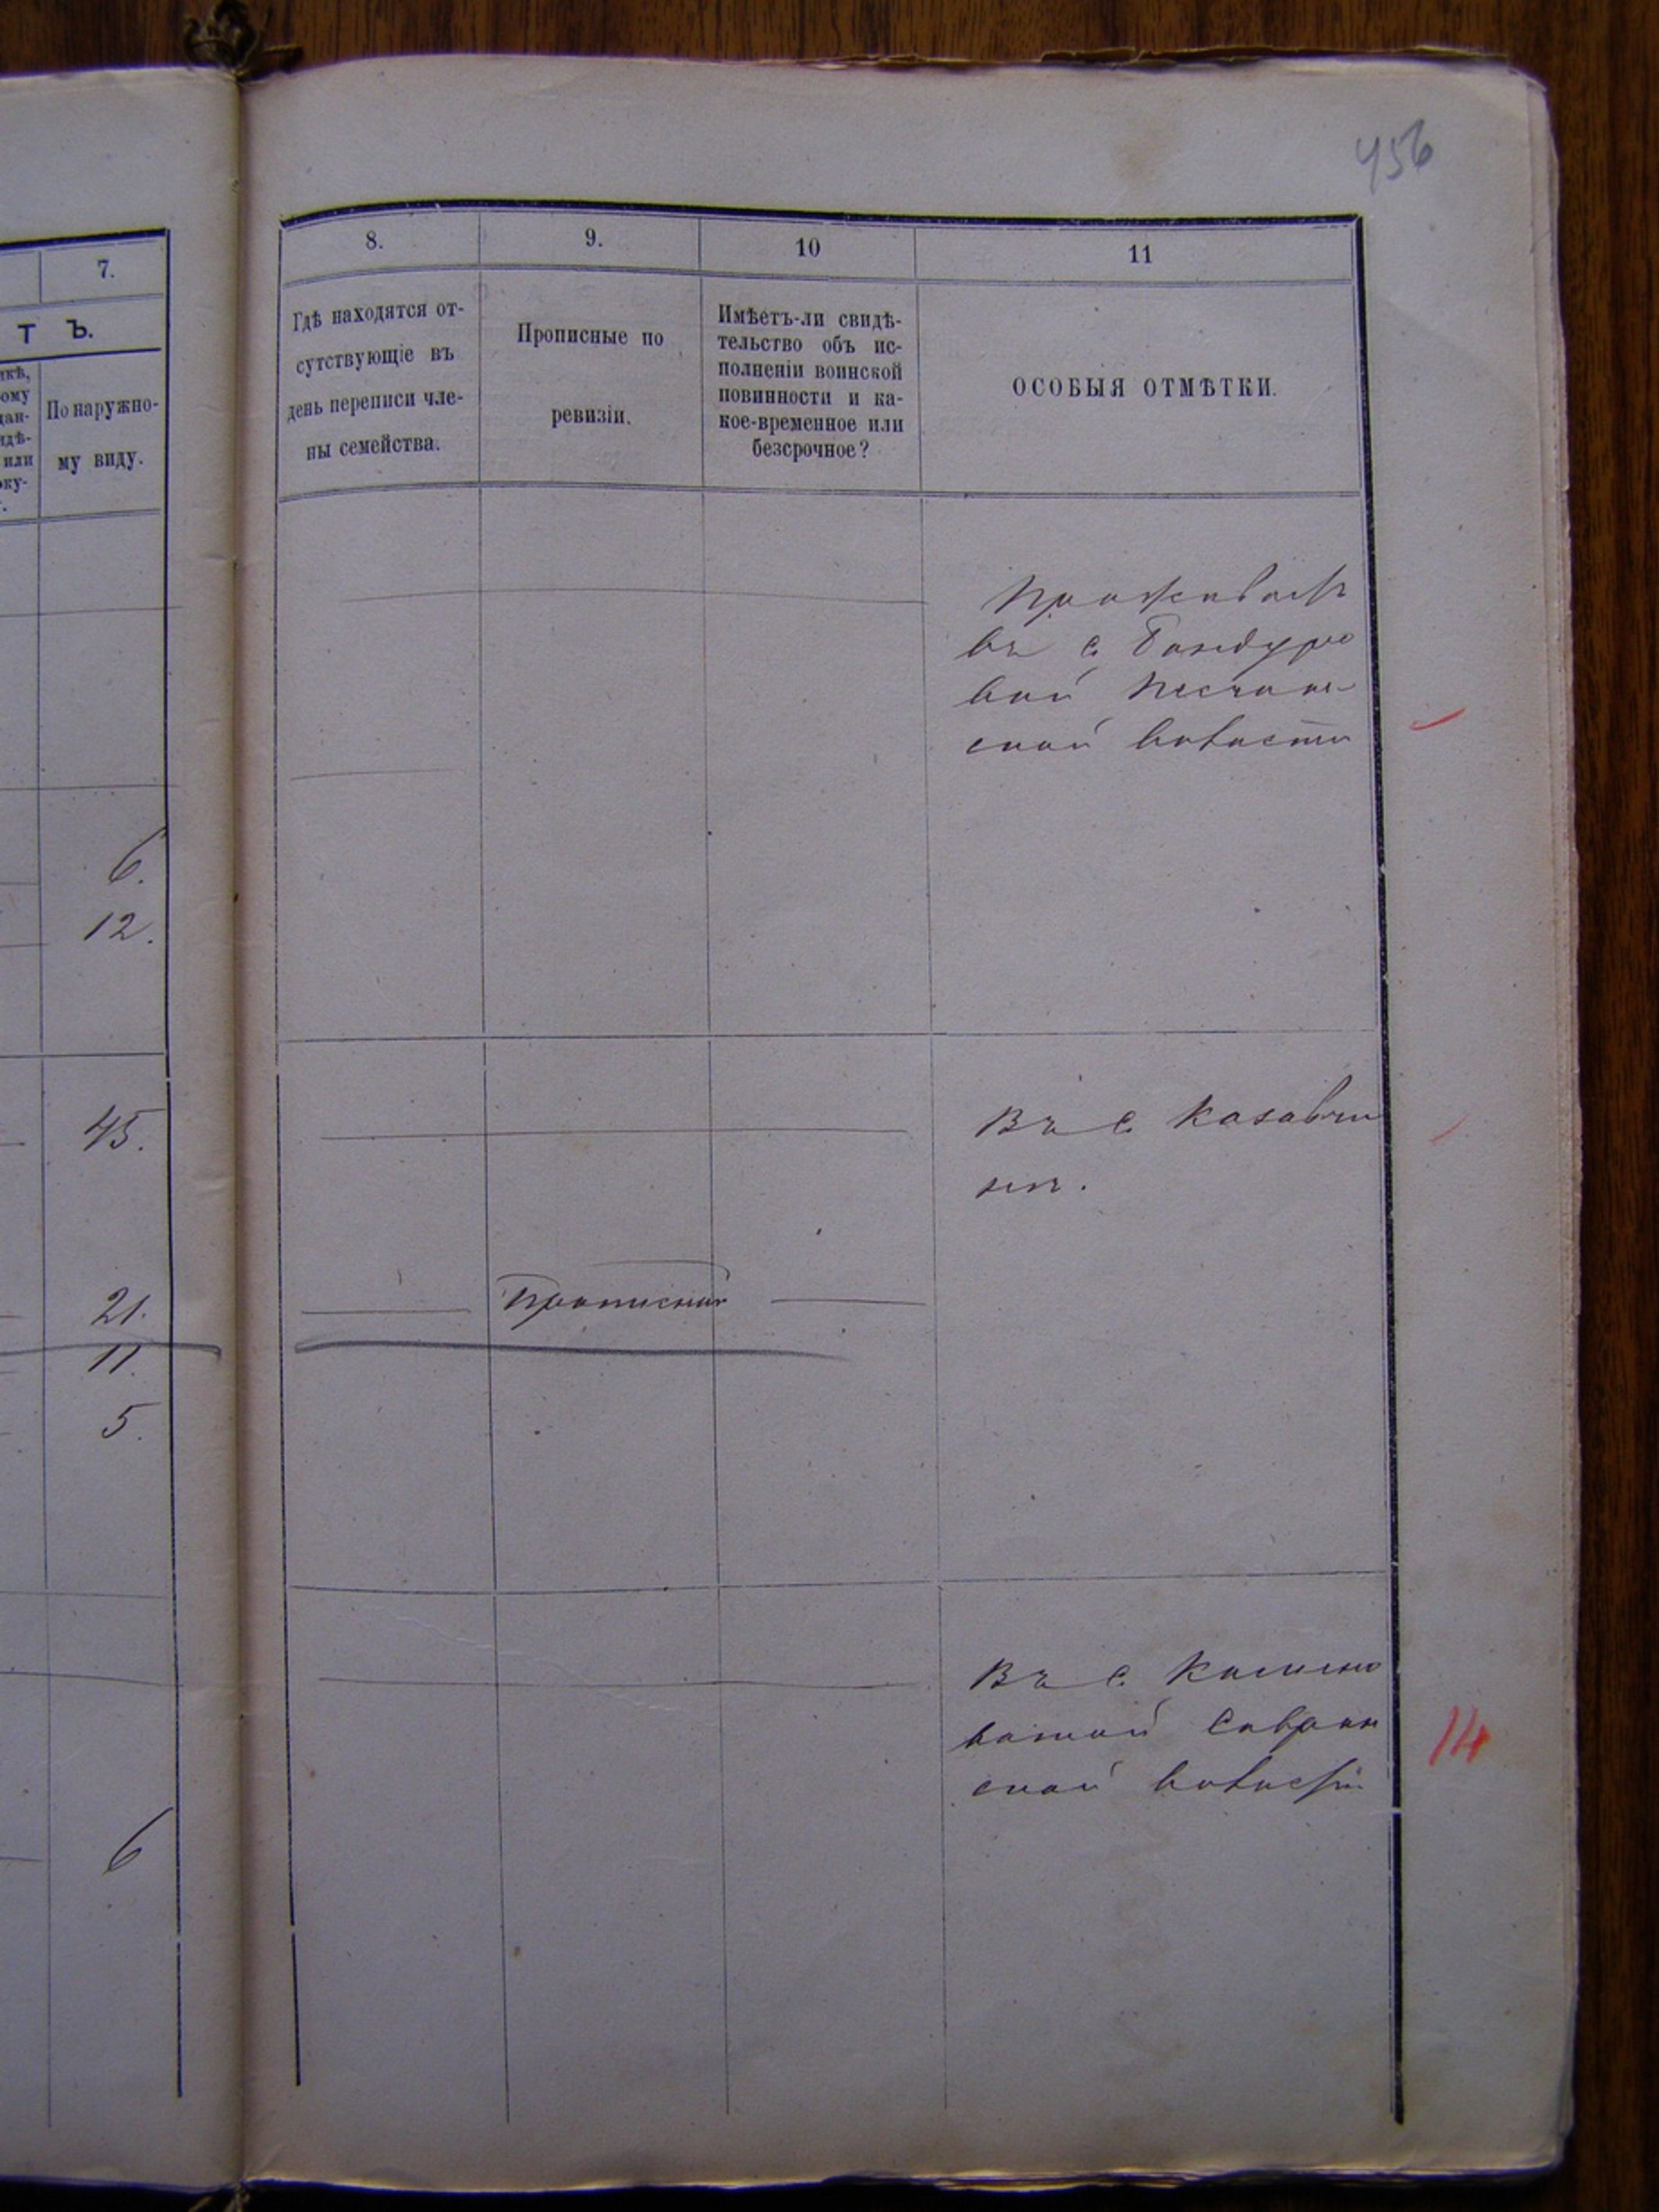 456
7.
Т Ъ.
По наружно-
му виду.
6.
12.
45.
21.
11.
5.
6
8.
9.
10
11
Гдѣ находятся от-
сутствующіе въ
день переписи чле-
ны семейства.
Прописные по
ревизіи.
Имѣетъ-ли свидѣ-
тельство объ ис-
полненіи воинской
повинности и ка-
кое-временное или
безсрочное?
ОСОБЫЯ ОТМѢТКИ.
Проживаетъ
въ с. Бандуро
вой Песчан-
ской волости
Въ с. Казавчи
нѣ.
Прописный
Въ с. Камено
ватой Савран
ской волости
14